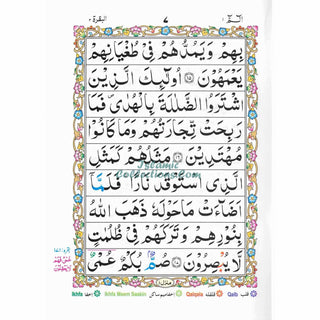 البقرة ٢
٧
الٓمّٓ ١
بِهِمْ وَيَمُدُّهُمْ فِيْ طُغْيَانِهِمْ
يَعْمَهُوْنَ ۝١٥ اُولٰٓئِكَ الَّذِيْنَ
اشْتَرَوُا الضَّلٰلَةَ بِالْهُدٰى۪ فَمَا
رَبِحَتْ تِّجَارَتُهُمْ وَمَا كَانُوْا
مُهْتَدِيْنَ ۝١٦ مَثَلُهُمْ كَمَثَلِ
الَّذِى اسْتَوْقَدَ نَارًا ۚ فَلَمَّاۤ
اَضَآءَتْ مَا حَوْلَهٗ ذَهَبَ اللّٰهُ
بِنُوْرِهِمْ وَتَرَكَهُمْ فِيْ ظُلُمٰتٍ
لَّا يُبْصِرُوْنَ ۝١٧ صُمٌّۢ بُكْمٌ عُمْيٌ
Islamic
Collections.Com
منزل ١
Ikhfa اخفا
Ikhfa Meem Saakin اخفا میم ساکن
Qalqala قلقلہ
Qalb قلب